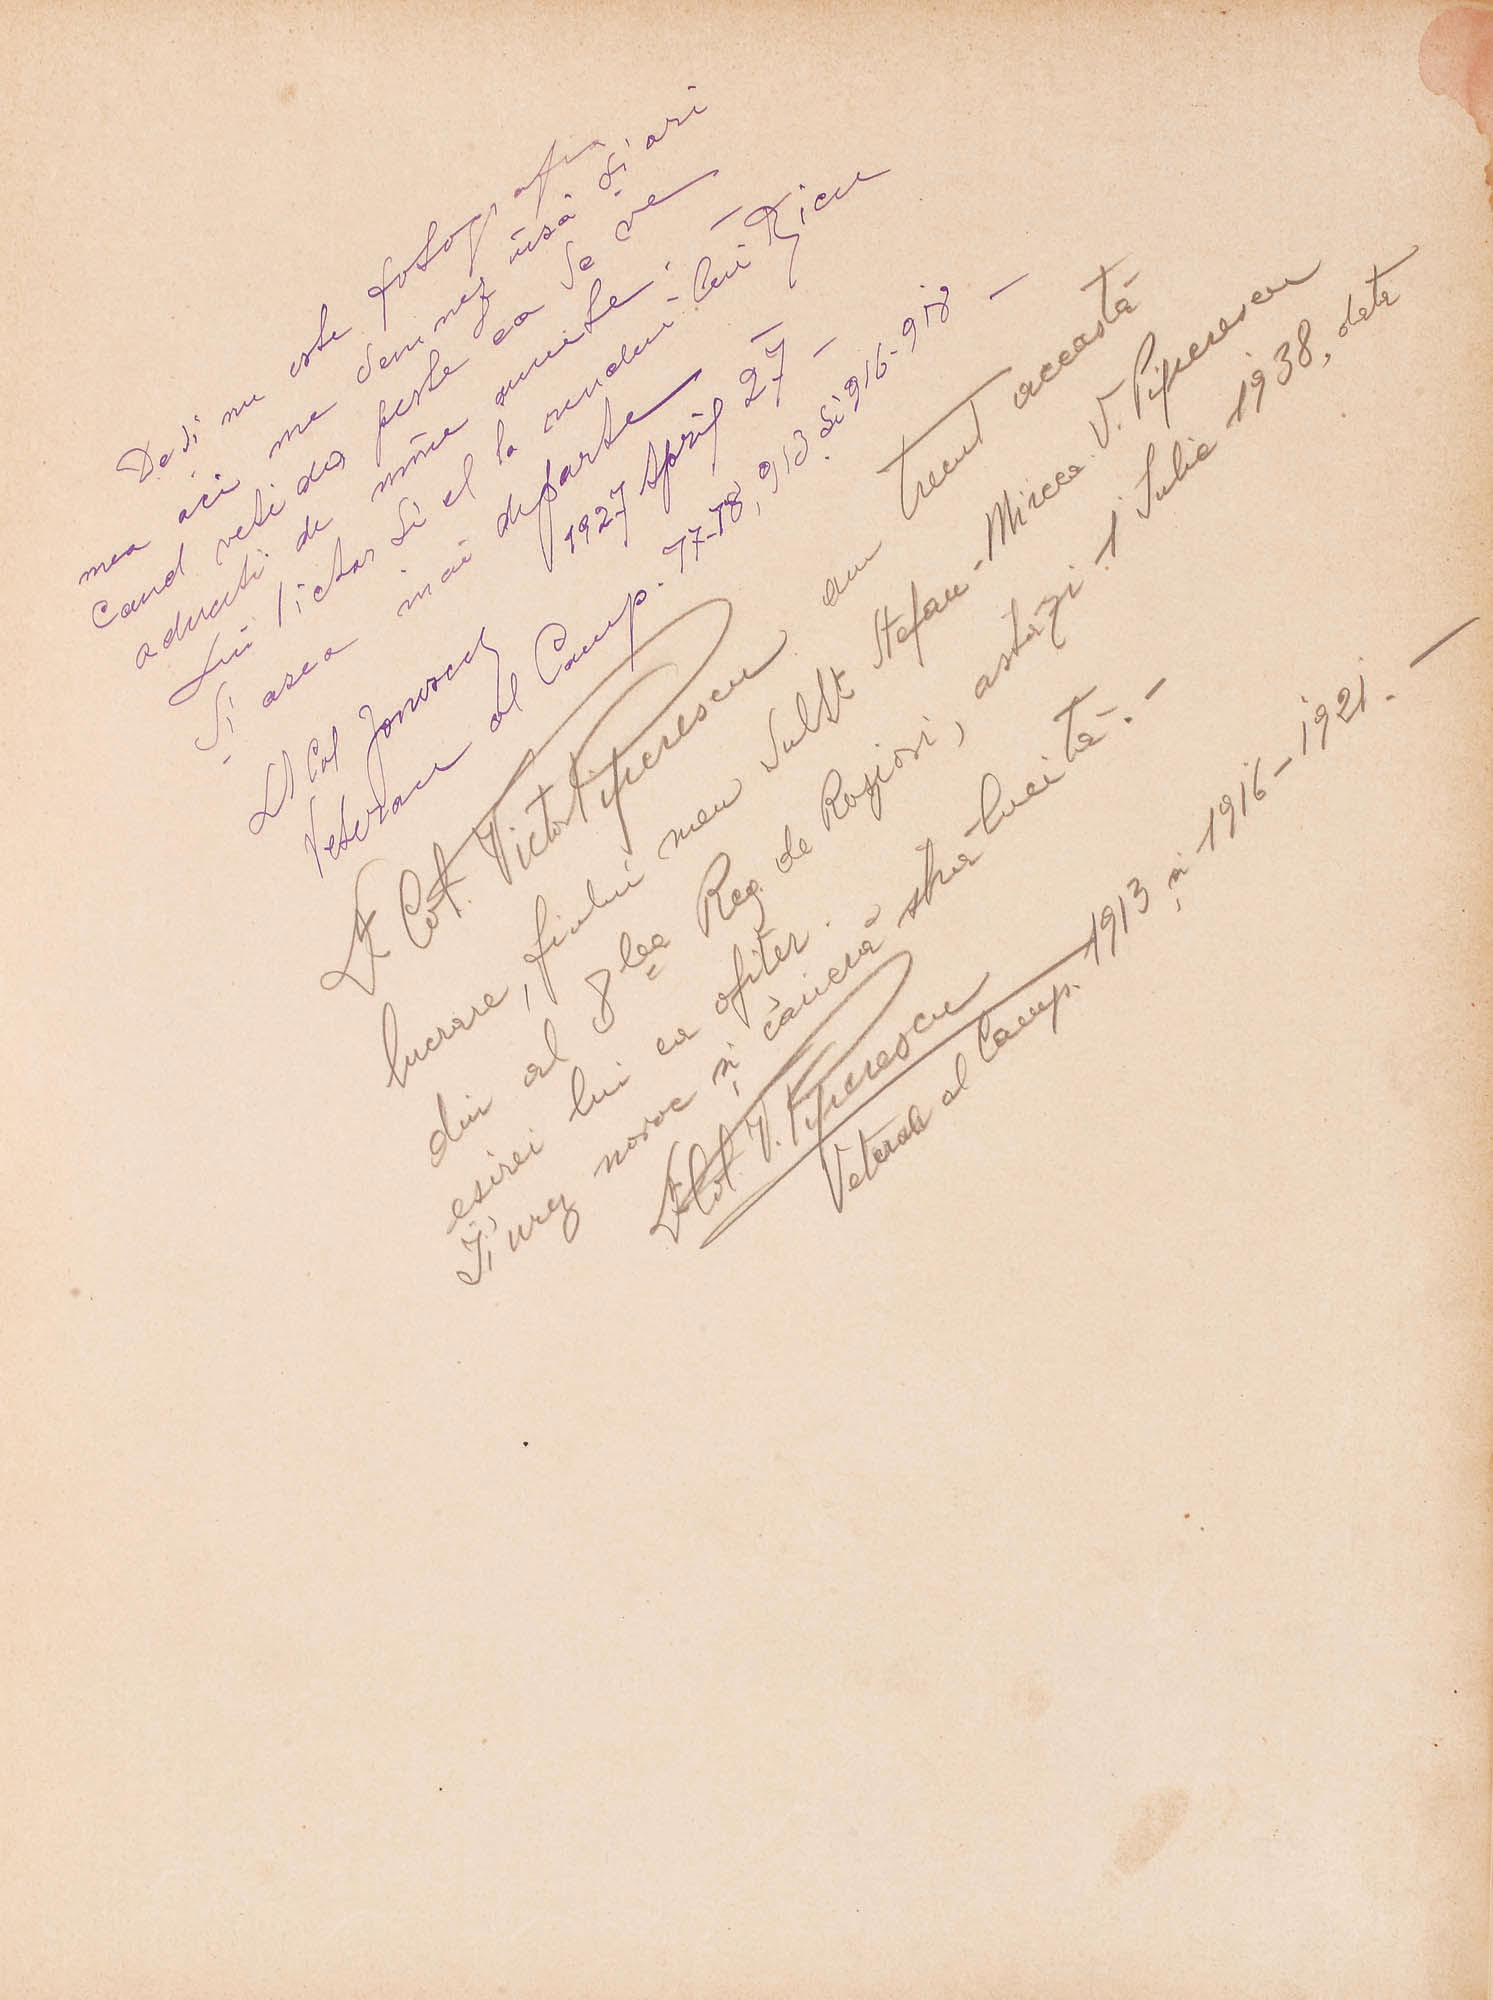 Desi nu este fotografia
mea aci me semnez însă și ori
Cand veti da peste ea se ve
aduceti de mine aminte,
lui Victor Si el la rendu-lui Ticu
Si asea mai departe
1927 April 27 —
Lt Col Jonescu
Veteran al Camp. 77-78, 913 si 916-918 —
Lt. Col. Victor Pifferescu am trecut această
lucrare, fiului meu Sublt Stefan-Mircea V. Pifferescu
din al 8lea Reg. de Roșiori, astazi 1 Iulie 1938, data
esirei lui ca ofiter.
Ĭi urez noroc și carieră strălucită. —
Lt. Col. V. Pifferescu
Veteran al Camp. 1913 și 1916-1921. —